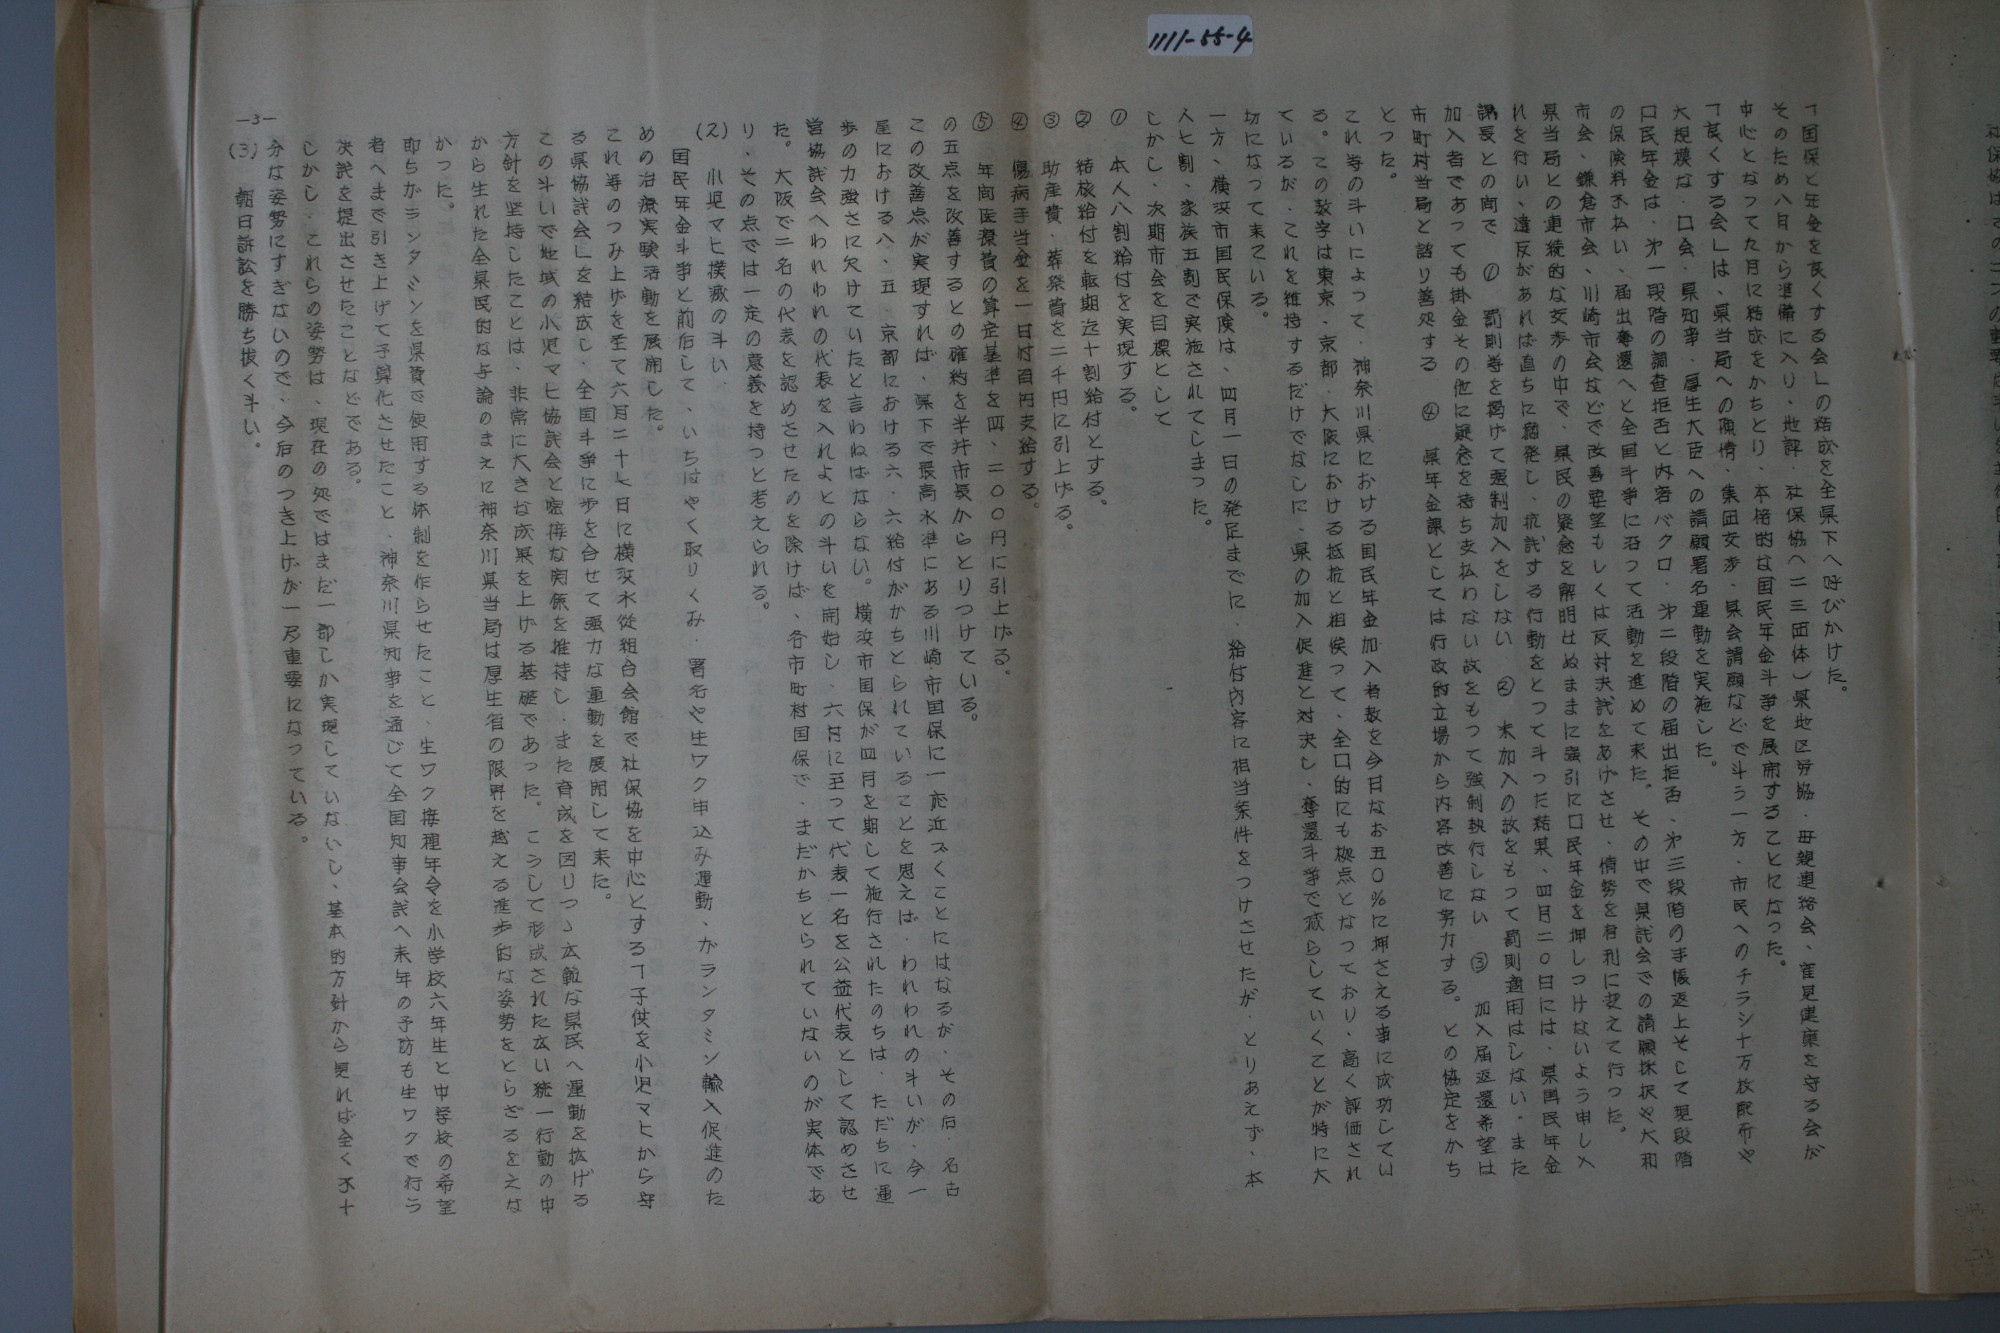 1111-55-4
「国保と年金を良くする会」の結成を全県下へ呼びかけた。
そのため八月から準備に入り、地評・社保協へ二三団体)県地区労協・母親連絡会、雀見健康を守る会が
中心となつて九月に結成をかちとり、本格的な国民年金斗争を展開することになった。
「良くする会」は、県当局への陳情・集団交渉、県会請願などで斗う一方、市民へのチラシ十万枚配布や
大規模な、口会・県知事・厚生大臣への請願署名運動を実施した。
口民年金は、才一段階の調査拒否と内容バクロ、才二段階の届出拒否、才三段階の手帳返上そして現段階
の保険料不払い、届出奪還へと全国斗争に沿つて活動を進めて来た。その中で県議会での請願採択や大和
市会・鎌倉市会、川崎市会などで改善要望もしくは反対決議をあげさせ、情勢を有利に変えて行った。
県当局との連続的な交渉の中で、県民の疑念を解明せぬままに強引に口民年金を押しつけないよう申し入
れを行い、違反があれば直ちに摘発し、抗議する行動をとつて斗った結果、四月二〇日には、県国民年金
課長との間で ① 罰則等を掲げて強制加入をしない ② 未加入の故をもつて罰則適用はしない、また
加入者であっても掛金その他に疑念を持ち支払わない故をもつて強制執行しない ③ 加入届返還希望は
市町村当局と諮り善処する ④ 県年金課としては行政的立場から内容改善に努力する。との協定をかち
とった。
これ等の斗いによって、神奈川県における国民年金加入者数を今日なお五〇％に押さえる事に成功してい
る。この数字は東京、京都、大阪における抵抗と相俟つて、全口的にも拠点となつており、高く評価され
ているが、これを維持するだけでなしに、県の加入促進と対決し、奪還斗争で減らしていくことが特に大
切になって来ている。
一方、横浜市国民保険は、四月一日の発足までに、給付内容に相当条件をつけさせたが、とりあえず、本
人七割、家族五割で実施されてしまった。
しかし、次期市会を目標として
① 本人八割給付を実現する。
② 結核給付を転期迄十割給付とする。
③ 助産費・葬祭費を二千円に引上げる。
④ 傷病手当金を一日付百円支給する。
⑤ 年間医療費の算定基準を四、二〇〇円に引上げる。
の五点を改善するとの確約を半井市長からとりつけている。
この改善点が実現すれば、県下で最高水準にある川崎市国保に一応近ズくことにはなるが、その后、名古
屋における八、五、京都における六、六給付がかちとられていることを思えば、われわれの斗いが、今一
歩の力強さに欠けていたと言わねばならない。横浜市国保が四月を期して施行されたのちは、ただちに運
営協議会へわれわれの代表を入れよとの斗いを開始し、六月に至って代表一名を公益代表として認めさせ
た。大阪で二名の代表を認めさせたのを除けば、各市町村国保で、まだかちとられていないのが実体であ
り、その点では一定の意義を持つと考えられる。
(2) 小児マヒ撲滅の斗い
国民年金斗争と前后して、いちはやく取りくみ、署名や生ワク申込み運動、ガランタミン輸入促進のた
めの治療実験活動を展開した。
これ等のつみ上げを至て六月二十七日に横浜水従組合会館で社保協を中心とする「子供を小児マヒから守
る県協議会」を結成し、全国斗争に歩を合せて強力な運動を展開して来た。
この斗いで地域の小児マヒ協議会と密接な関係を維持し、また育成を図りつゝ広範な県民へ運動を拡げる
方針を堅持したことは、非常に大きな成果を上げる基礎であった。こうして形成された広い統一行動の中
から生れた全県民的な与論のまえに神奈川県当局は厚生省の限界を越える進歩的な姿勢をとらざるをえな
かった。
即ちガランタミンを県費で使用する体制を作らせたこと、生ワク接種年令を小学校六年生と中学校の希望
者へまで引き上げて予算化させたこと、神奈川県知事を通じて全国知事会議へ来年の予防も生ワクで行う
決議を提出させたことなどである。
しかし、これらの姿勢は、現在の処ではまだ一部しか実現していないし、基本的方針から見れば全く不十
分な姿勢にすぎないので、今后のつき上げが一層重要になっている。
(3) 朝日訴訟を勝ち抜く斗い。
—3—